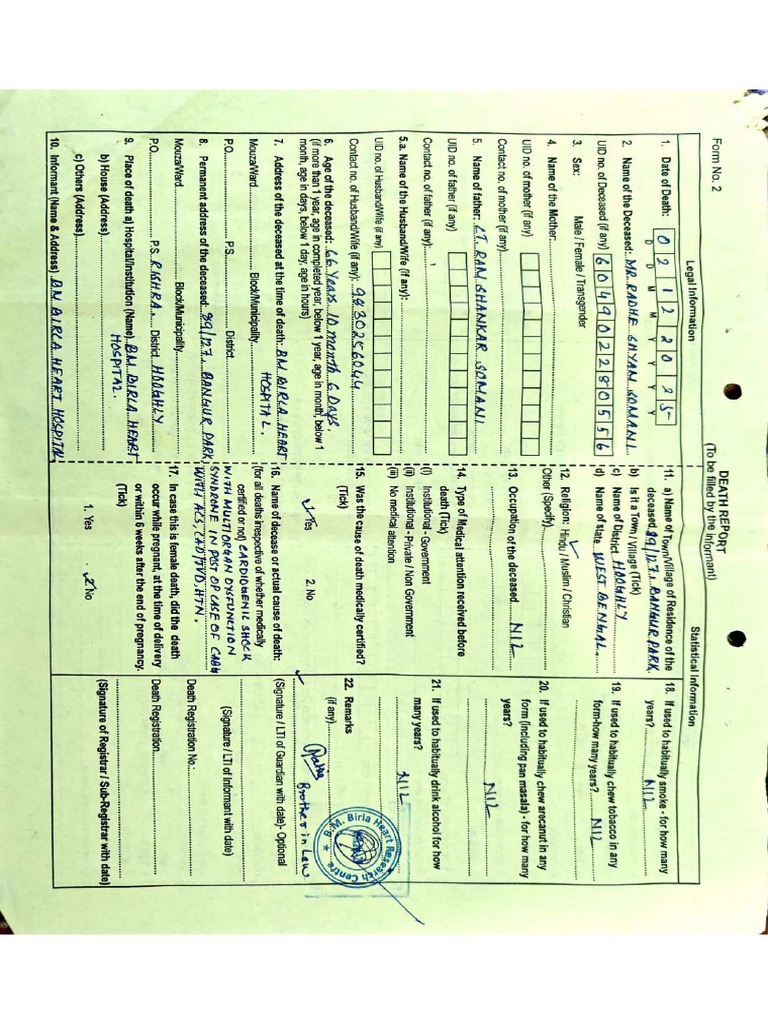 Form No. 2
DEATH REPORT
(To be filled by the Informant)
Legal Information
1. Date of Death: 0 2 1 2 2 0 2 5
D D M M Y Y Y Y
2. Name of the Deceased: MR. RADHE SHYAM SOMANI
UID no. of Deceased (if any) 6 0 4 9 0 2 2 8 0 5 5 6
3. Sex: Male / Female / Transgender
4. Name of the Mother:
UID no. of mother (if any)
Contact no. of mother (if any)
5. Name of father: LT. RAM SHANKAR SOMANI
UID no. of father (if any)
Contact no. of father (if any):
5.a. Name of the Husband/Wife (If any):
UID no. of Husband/Wife (if any)
Contact no. of Husband/Wife (if any): 9830256044
6. Age of the deceased: 66 Years 10 month 6 Days.
(if more than 1 year, age in completed year, below 1 year, age in month, below 1
month, age in days, below 1 day, age in hours)
7. Address of the deceased at the time of death: B.M. BIRLA HEART
HOSPITAL.
Mouza/Ward Block/Municipality
P.O. P.S. District
8. Permanent address of the deceased: 89/127, BANGUR PARK
Mouza/Ward Block/Municipality
P.O. P.S. RISHRA District HOOGHLY
9. Place of death a) Hospital/Institution (Name) B.M. BIRLA HEART
HOSPITAL.
b) House (Address)
c) Others (Address)
10. Informant (Name & Address) B.M. BIRLA HEART HOSPITAL
Statistical Information
11. a) Name of Town/Village of Residence of the
deceased 89/127, BANGUR PARK
b) Is it a Town / Village (Tick)
c) Name of District HOOGHLY
d) Name of state WEST BENGAL.
12. Religion: Hindu / Muslim / Christian
Other (Specify)
13. Occupation of the deceased NIL
14. Type of Medical attention received before
death (Tick)
(i) Institutional - Government
(ii) Institutional - Private / Non Government
(iii) No medical attention
15. Was the cause of death medically certified?
(Tick)
1. Yes 2. No
16. Name of decease or actual cause of death:
(for all deaths irrespective of whether medically
certified or not) CARDIOGENIC SHOCK
WITH MULTIORGAN DYSFUNCTION
SYNDROME IN POST OP CASE OF CABG
WITH ACS, CAD/TVD, HTN.
17. In case this is female death, did the death
occur while pregnant, at the time of delivery
or within 6 weeks after the end of pregnancy.
(Tick)
1. Yes 2. No
18. If used to habitually smoke - for how many
years? NIL
19. If used to habitually chew tobacco in any
form-how many years? NIL
20. If used to habitually chew arecanut in any
form (including pan masala) - for how many
years? NIL
21. If used to habitually drink alcohol for how
many years? NIL
22. Remarks
(if any)
Brother in Law
(Signature / LTI of Guardian with date)- Optional
(Signature / LTI of Informant with date)
Death Registration No.:
Death Registration
(Signature of Registrar / Sub-Registrar with date)
B.M. Birla Heart Research Centre